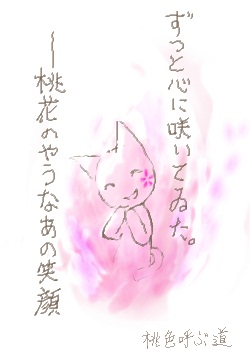 ずっと心に咲いてゐた。
～桃花のやうなあの笑顔
桃色呼ぶ道